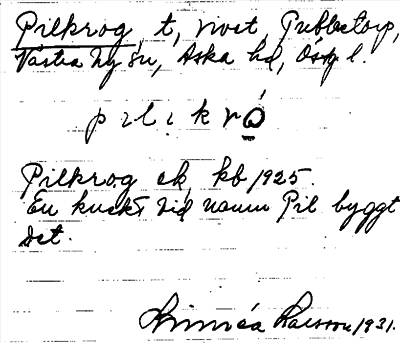 Pilkrog, t, rivet, Gubbetorp,
Västra Ny sn, Aska hd, Östg l.
p i l i k r ó
Pilkrog ek kb 1925.
En knekt vid namn Pil byggt
det.
Linnéa Larsson 1931.